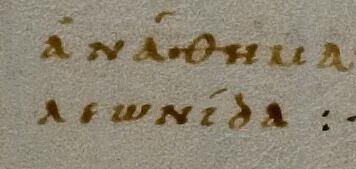 ἀνάθημα
λεωνίδα :·